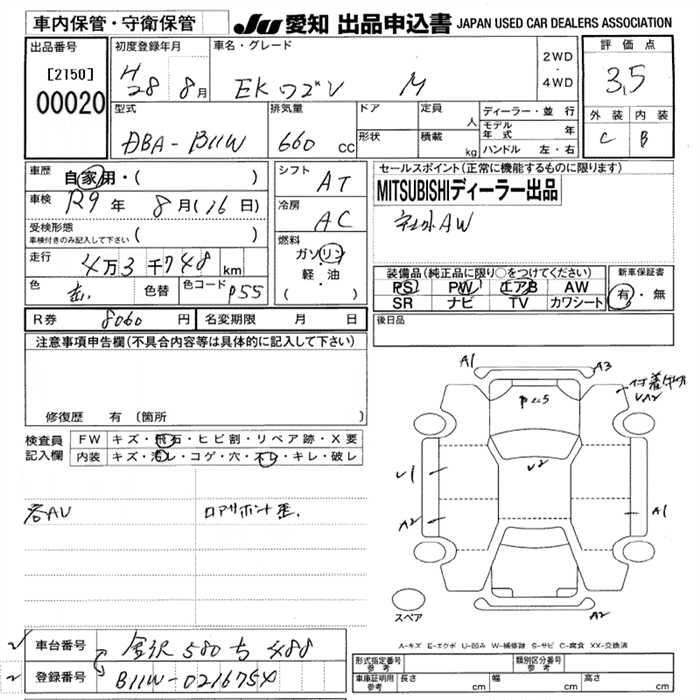 車内保管・守衛保管
JU 愛知 出品申込書 JAPAN USED CAR DEALERS ASSOCIATION
出品番号
[2150]
00020
初度登録年月
H28 8月
車名・グレード
EKワゴン M
2WD
・
4WD
評価点
3,5
外装 内装
C B
型式
DBA-B11W
排気量
660 CC
ドア
形状
定員
人
積載
kg
ディーラー・並行
モデル年式 年
ハンドル 左・右
車歴
自家用・( )
車検
R9年 8月(16日)
受検形態
車検付きのみ記入して下さい ( )
走行
4万3千748km
色
色替
色コード P55
シフト
AT
冷房
AC
燃料
ガソリン
・
軽・油
( )
セールスポイント(正常に機能するものに限ります)
MITSUBISHIディーラー出品
社外AW
装備品(純正品に限り○をつけてください)
PS PW エアB AW
SR ナビ TV カワシート
新車保証書
有・無
R券 8060円
名変期限 月 日
後日品
注意事項申告欄(不具合内容等は具体的に記入して下さい)
修復歴 有 (箇所 )
検査員記入欄
FW キズ・飛石・ヒビ割・リペア跡・X要
内装 キズ・汚レ・コゲ・穴・スレ・キレ・破レ
各AU
ロアサポート歪.
A1
A3
付着物
UA2
P
U2
U1
A2
A1
A2
スペア
A-キズ E-エクボ U-凹み W-補修跡 S-サビ C-腐食 XX-交換済
車台番号
金沢 580 ち 488
登録番号
B11W-0216754
形式指定番号
参考
類別区分番号
参考
車庫証明用
参考
長さ cm
幅 cm
高さ cm